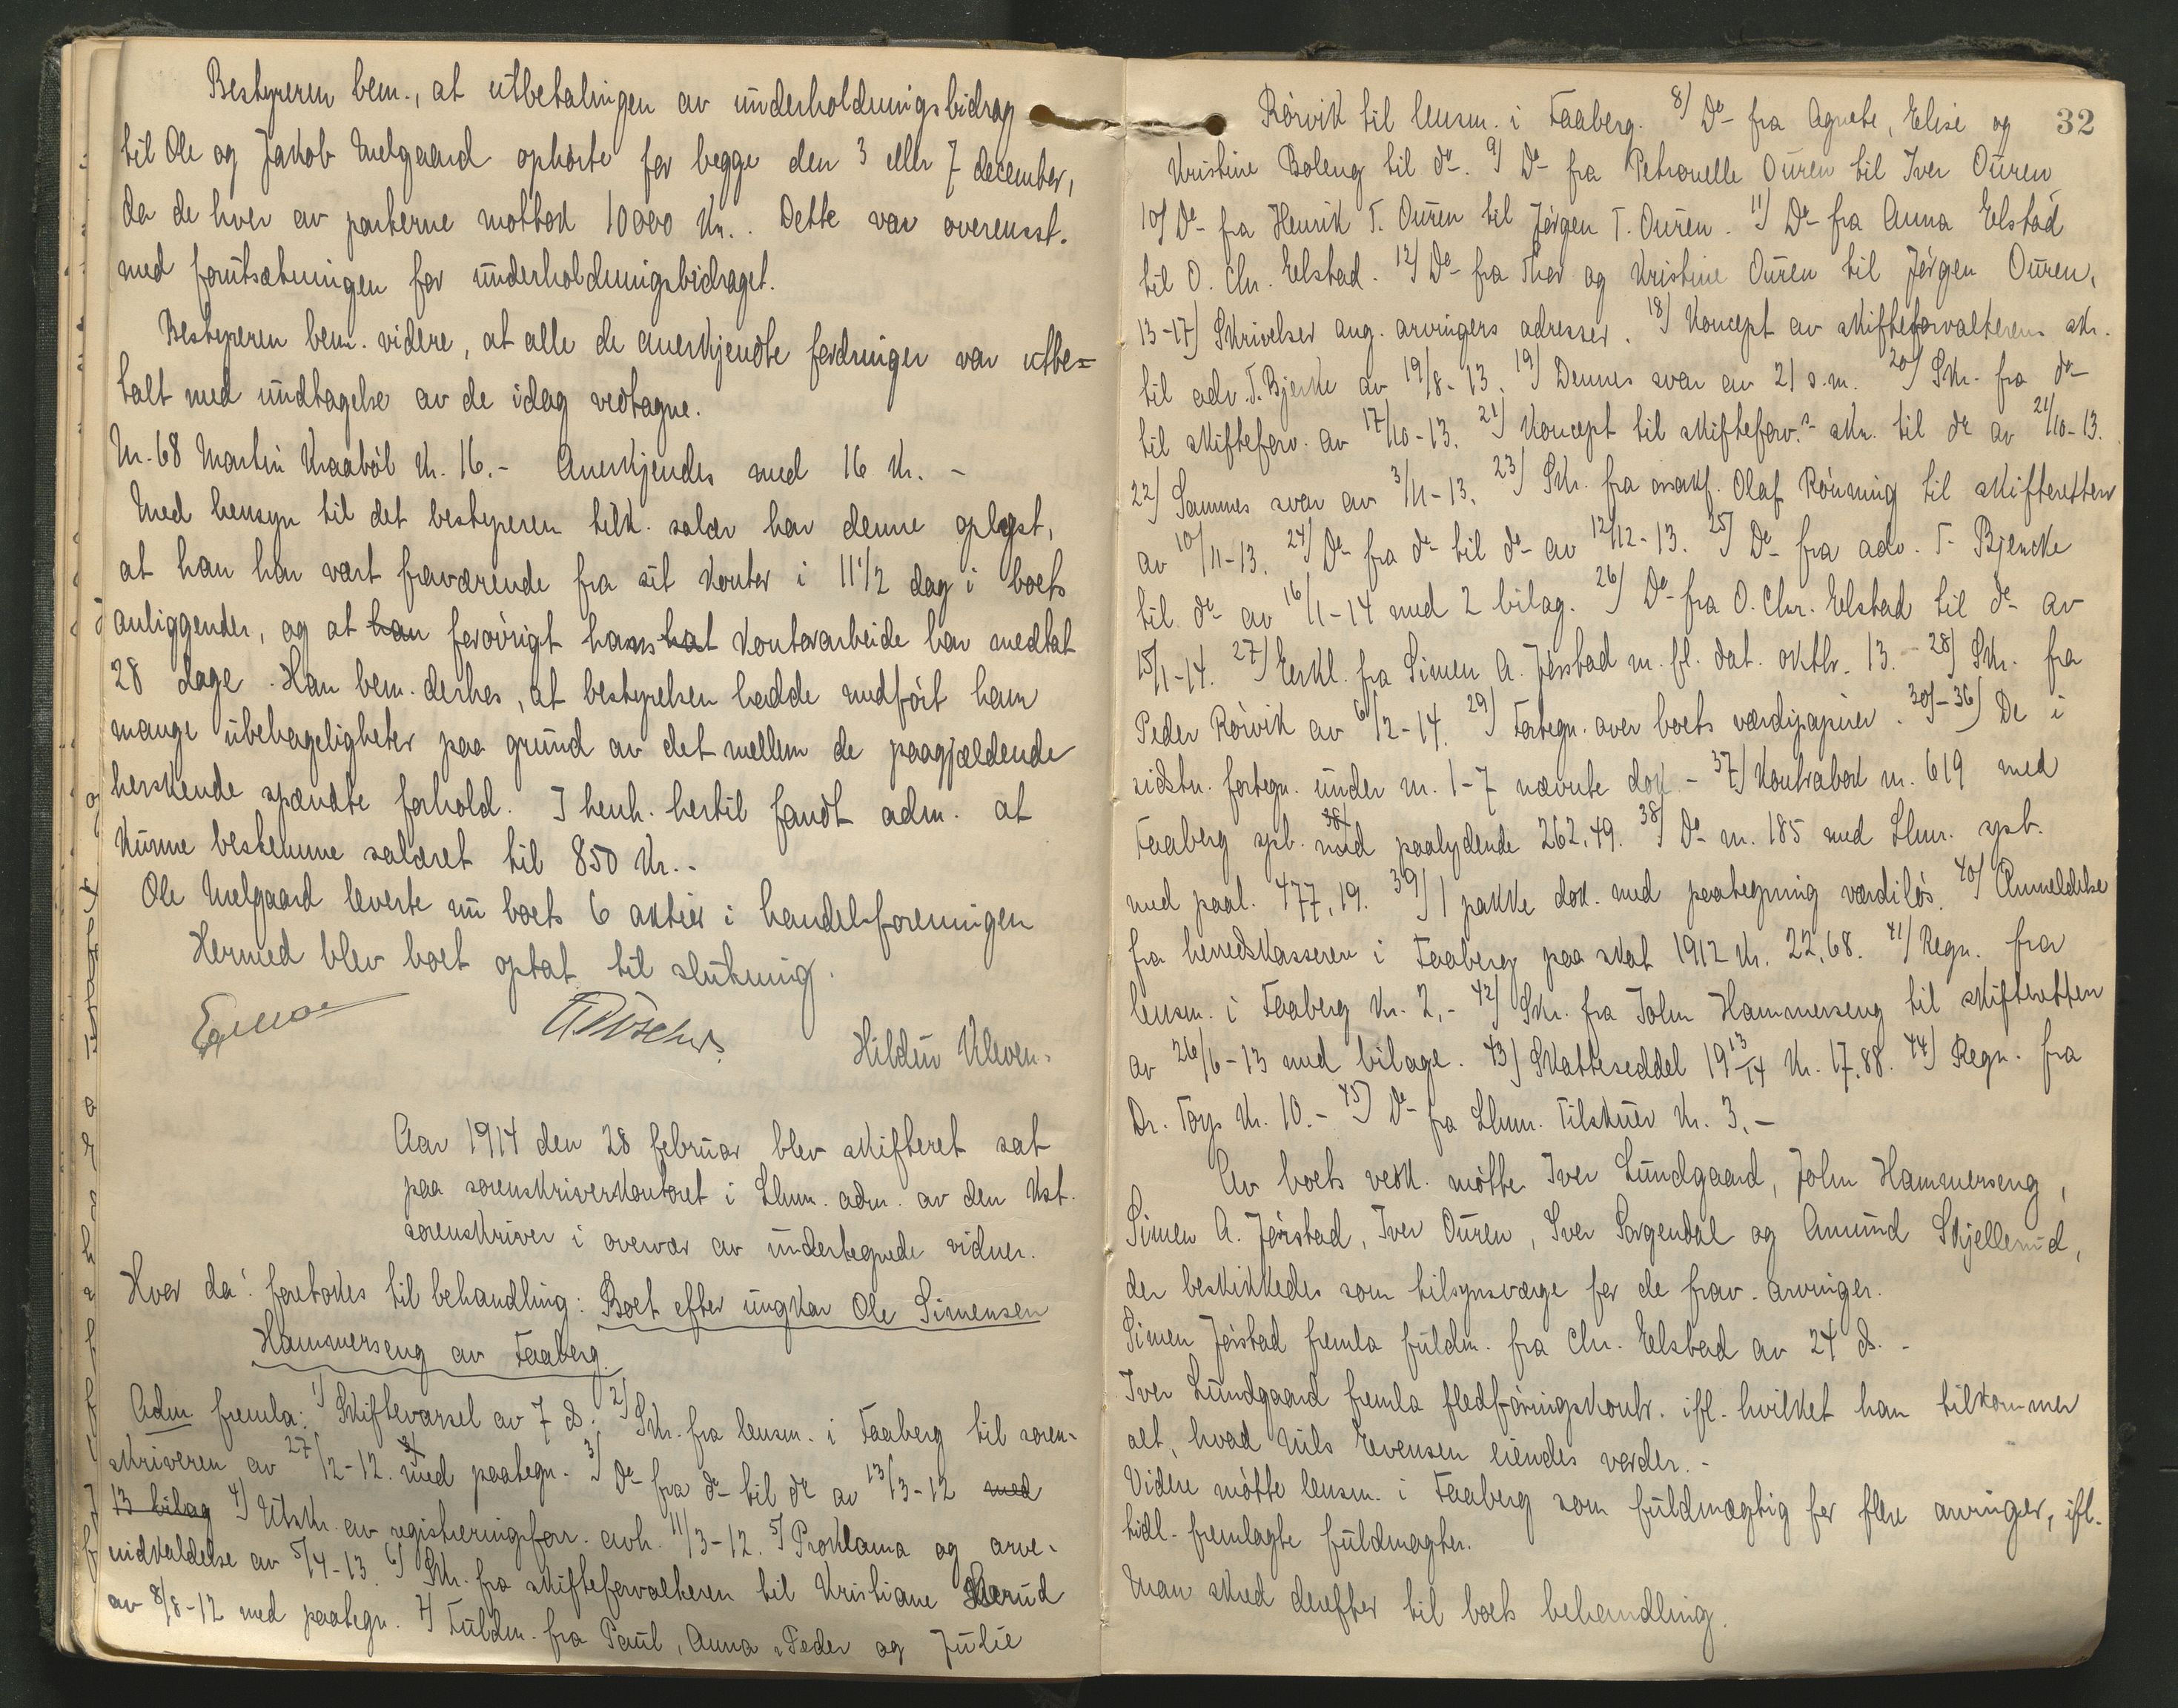 Bestyreren bem., at utbetalingen av underholdningsbidrag
til Ole og Jakob Melgaard ophørte for begge den 3 eller 7 december,
da de hver av parterne mottok 10000 Kr.. Dette var overensst.
med forutsætningen for underholdningsbidraget.
Bestyreren bem. videre, at alle de anerkjendte fordringer var utbe=
talt med undtagelse av de idag vedtagne.
Nr. 68 Martin Kraabøl Kr. 16.- Anerkjendes med 16 Kr. -
Med hensyn til det bestyreren tilk. salær har denne oplyst,
at han har vært fraværende fra sit kontor i 11 1/2 dag i boets
anliggender, og at han forøvrigt hans hat kontorarbeide har medtat
28 dage. Han bem. derhos, at bestyrelsen hadde medført ham
mange ubehageligheter paa grund av det mellem de paagjældende
herskende spændte forhold. I henh. hertil fandt adm. at
kunne bestemme salæret til 850 Kr..
Ole Melgaard leverte nu boets 6 aktier i handelsforeningen
Hermed blev boet optat til slutning.
Hildur Kleven.
Aar 1914 den 28 februar blev skifteret sat
paa sorenskriverkontoret i Lhmr. adm. av den kst.
sorenskriver i overvær av undertegnede vidner.
Hvor da: foretokes til behandling: Boet efter ungkar Ole Simensen
Hammerseng av Faaberg.
Adm. fremla: 1) Skiftevarsel av 7 ds. 2) Skr. fra lensm. i Faaberg til soren-
skriveren av 27/12-12. 3) med paategn. 3) Do fra do til do av 13/3-12 med
13 bilag 4) Utskr. av registreringsforr. avh. 11/3-12. 5) Proklama og arve-
indkaldelse av 5/4-13. 6) Skr. fra skifteforvalteren til Kristiane
av 8/8-12 med paategn. 7) Fuldm. fra Paul, Anna, Peder og Julie
32
Rørvik til lensm. i Faaberg. 8) Do fra Agnete, Elise og
Kristine Boleng til do. 9) Do fra Petronelle Ouren til Iver Ouren
10) Do fra Henrik T. Ouren til Jørgen T. Ouren. 11) Do fra Anna Elstad
til O. Chr. Elstad. 12) Do fra Thor og Kristine Ouren til Jørgen Ouren,
13-17) Skrivelser ang. arvingers adresser. 18) Koncept av skifteforvalterens skr.
til adv. T. Bjerke av 19/8-13. 19) Dennes svar av 21 s.m. 20) Skr. fra do
til skifteforv. av 17/10-13. 21) Koncept til skifteforv.s skr. til do av 21/10-13.
22) Sammes svar av 3/11-13. 23) Skr. fra Olaf Rønning til skifteretten
av 10/11-13. 24) Do fra do til do av 12/12-13. 25) Do fra adv. T. Bjencke
til do av 16/1-14 med 2 bilag. 26) Do fra O. Chr. Elstad til do av
15/1-14. 27) Erkl. fra Simen A. Jørstad m. fl. dat. oktbr. 13. - 28) Skr. fra
Peder Rørvik av 6/2-14. 29) Fortegn. over boets værdipapirer. 30)-36) De i
sidstn. fortegn. under nr. 1-7 nævnte dok. - 37) Kontrabok nr. 619 med
Faaberg spb. 38) med paalydende 262,49. 38) Do nr. 185 med Lhmr. spb.
med paal. 477,19. 39) 1 pakke dok. med paategning værdiløs. 40) Anmeldelse
fra herredskasseren i Faaberg paa skat 1912 Kr. 22,68. 41) Regn. fra
lensm. i Faaberg Kr. 2,- 42) Skr. fra John Hammerseng til skifteretten
av 26/6-13 med bilage. 43) Skatteseddel 1913/14 Kr. 17,88. 44) Regn. fra
Dr. Torp Kr. 10.- 45) Do fra Lhmr. Tilskuer Kr. 3,-
Av boets vedk. møtte Iver Lundgaard, John Hammerseng,
Simen A. Jørstad, Iver Ouren, Iver Sorgendal og Amund Skjellerud,
der beskikkedes som tilsynsværge for de frav. arvinger.
Simen Jørstad fremla fuldm. fra Chr. Elstad av 24 ds. -
Iver Lundgaard fremla fledføringskontr. ifl. hvilket han tilkommer
alt, hvad Nils Evensen eiendes vorder. -
Videre møtte lensm. i Faaberg som fuldmægtig for flere arvinger, ifl.
tidl. fremlagte fuldmagter.
Man skred derefter til boets behandling.